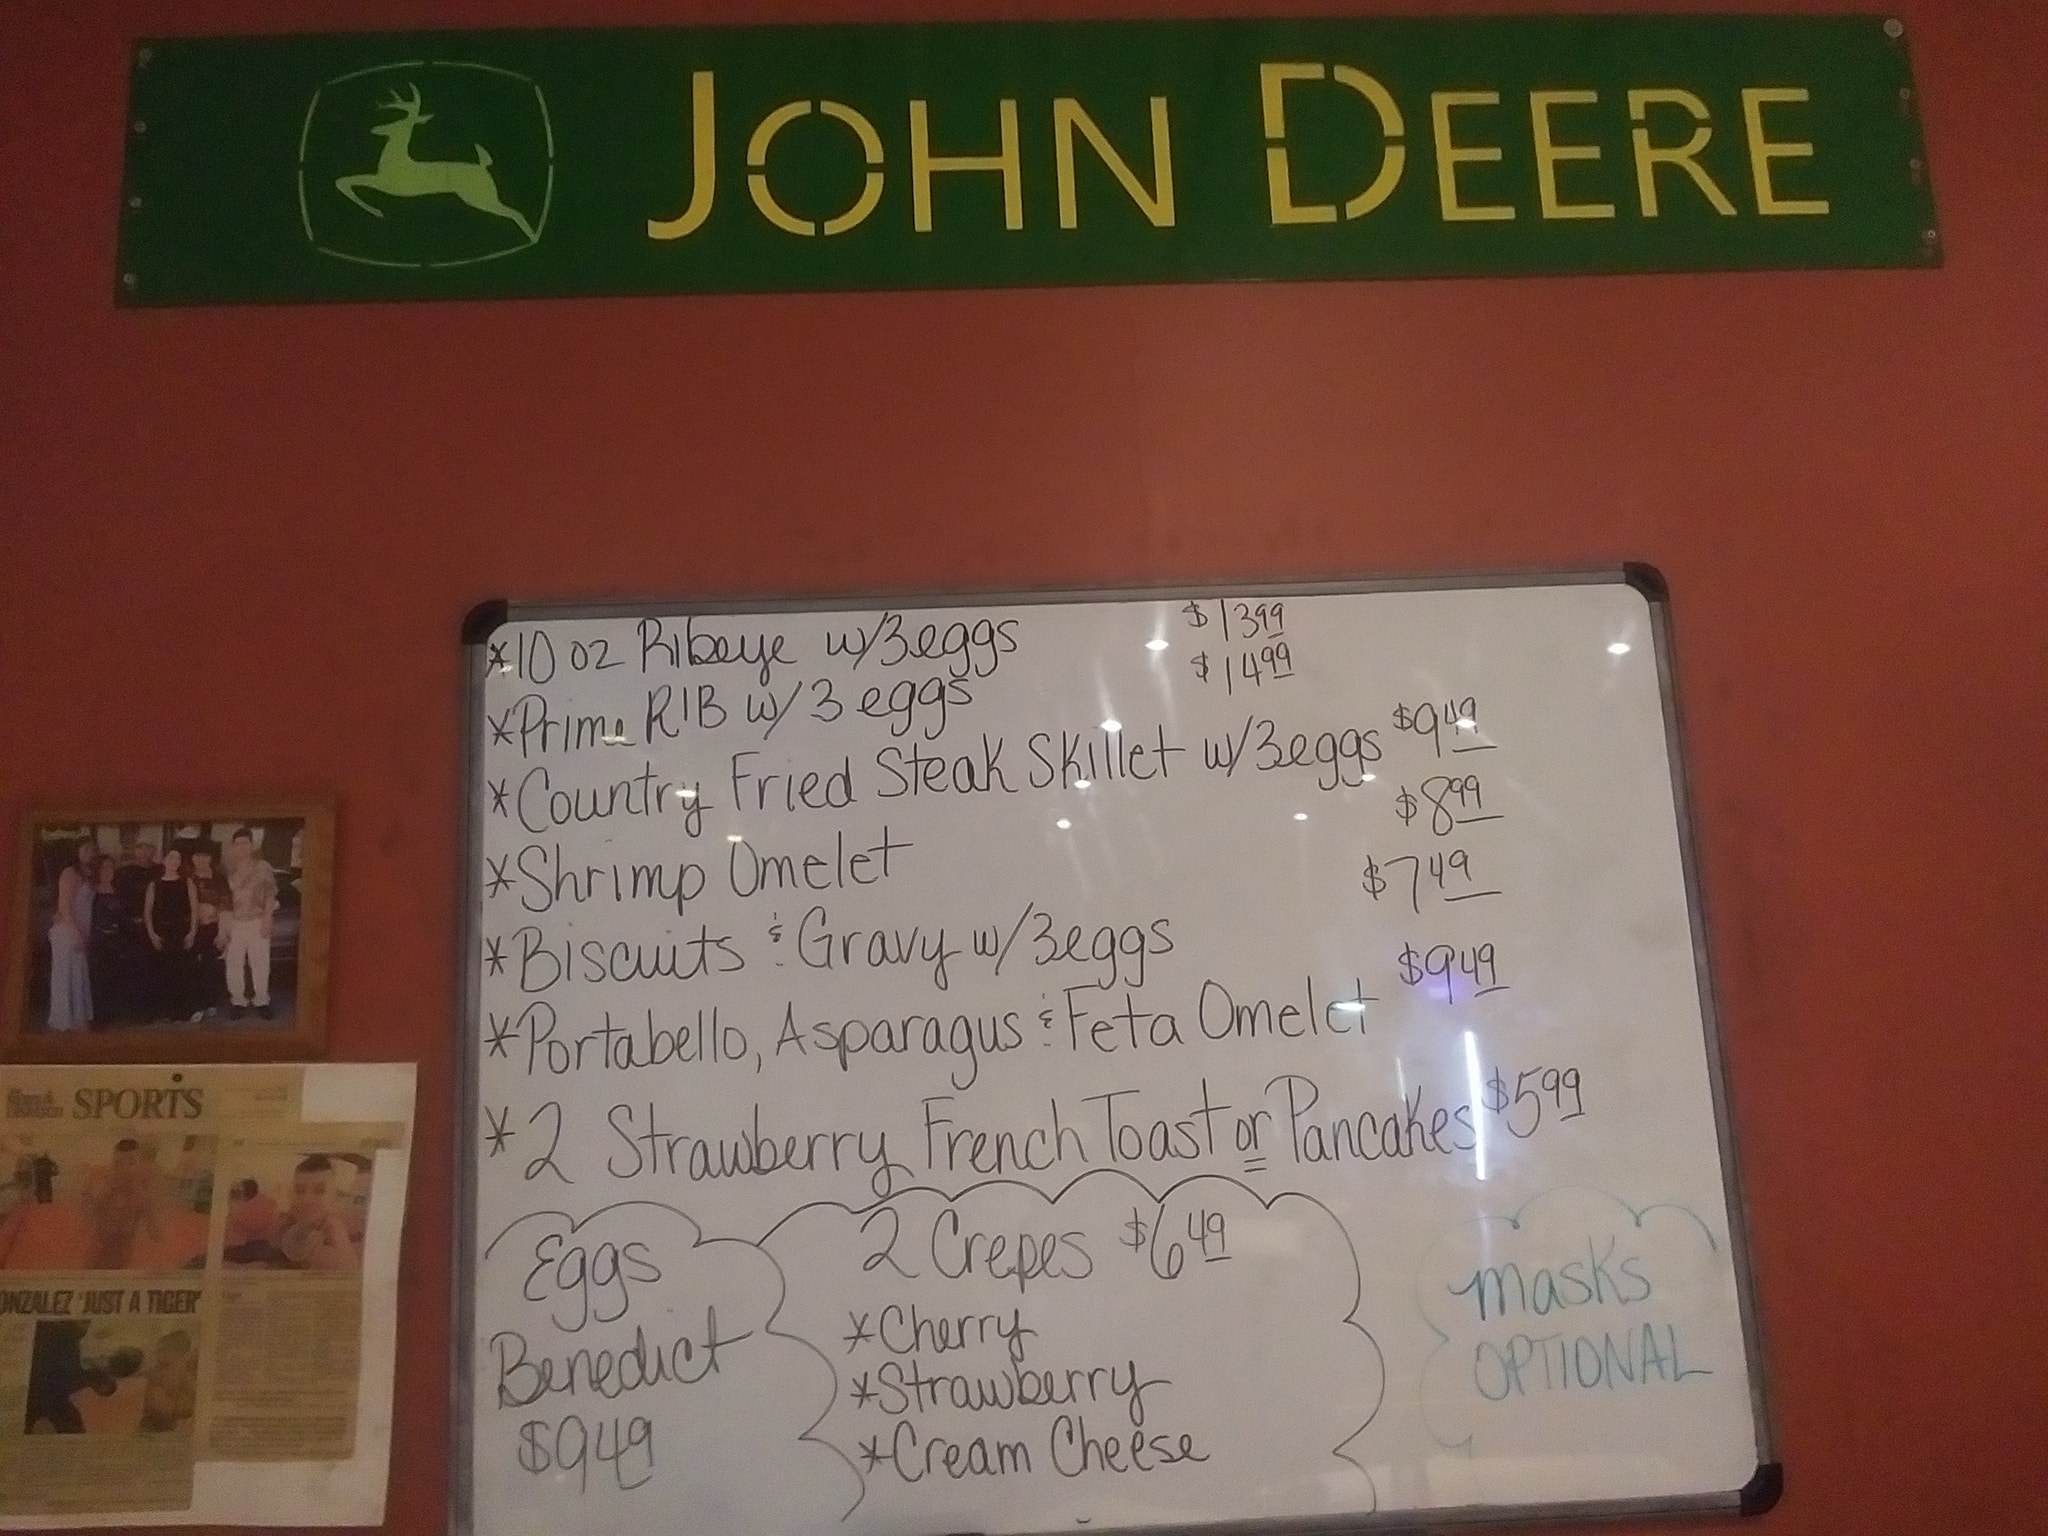 JOHN DEERE
*10 oz Ribeye w/3eggs $13 99
*Prime RIB w/3 eggs $14 99
*Country Fried Steak Skillet w/3eggs $9 49
*Shrimp Omelet $8 99
*Biscuits & Gravy w/3eggs $7 49
*Portabello, Asparagus & Feta Omelet $9 49
*2 Strawberry French Toast or Pancakes $5 99
Eggs
Benedict
$9 49
2 Crepes $6 49
*Cherry
*Strawberry
*Cream Cheese
masks
OPTIONAL
SPORTS
ONZALEZ 'JUST A TIGER'